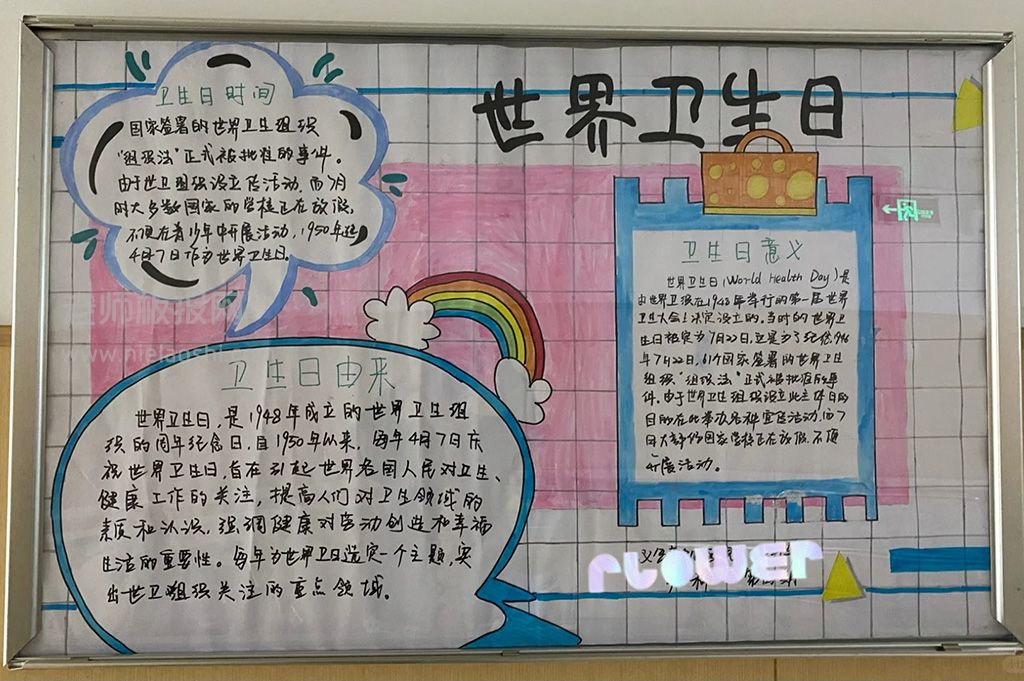 世界卫生日
卫生日时间
国家签署的世界卫生组织
"组织法"正式被批准的事件。
由于世卫组织设立一活动,而7月
时大多数国家的学校已在放假,
不便在青少年中开展活动,1950年起
4月7日作为世界卫生日。
卫生日意义
世界卫生日(World Health Day)是
由世界卫组在1948年举行的第一届世界
卫生大会上决定设立的,当时的世界卫
生日被定为7月22日,这是为了纪念946
年7月22日,61个国家签署的世界卫生
组织"组织法"正式被批准的事
件。由于世界卫生组织设立此主体日的
目的在此举办各种宣传活动,而7
月大部份国家学校已在放假,不便
开展活动。
卫生日由来
世界卫生日,是1948年成立的世界卫生组
织的周年纪念日,自1950年以来,每年4月7日庆
祝世界卫生日,旨在引起世界各国人民对卫生、
健康工作的关注,提高人们对卫生领域的
素质和认识,强调健康对劳动创造和幸福
生活的重要性。每年为世界卫日选定一个主题,突
出世卫组织关注的重点领域。
FLOWER
老师板报网